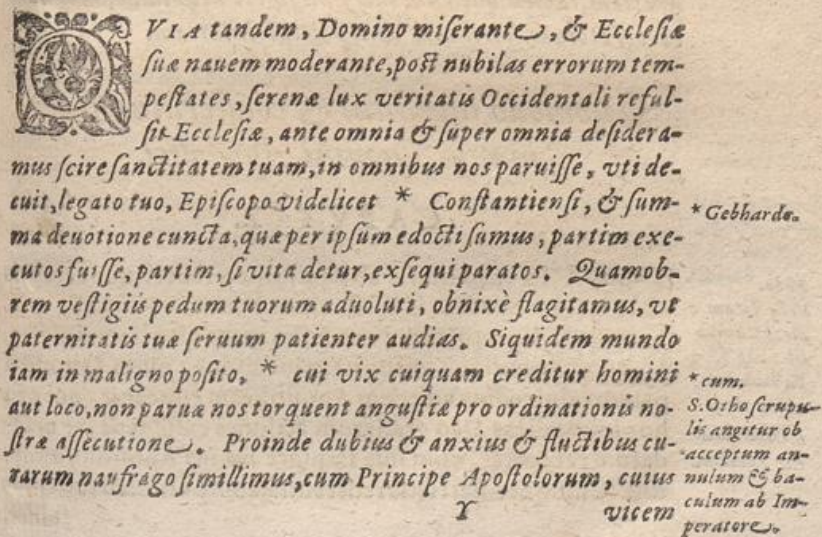 QVIA tandem, Domino miserante, & Ecclesiæ
suæ nauem moderante, post nubilas errorum tem-
pestates, serenæ lux veritatis Occidentali reful-
sit Ecclesiæ, ante omnia & super omnia desidera-
mus scire sanctitatem tuam, in omnibus nos paruisse, vti de-
cuit, legato tuo, Episcopo videlicet * Constantiensi, & sum-
ma deuotione cuncta, quæ per ipsum edocti sumus, partim exe-
cutos fuisse, partim, si vita detur, exsequi paratos. Quamob-
rem vestigiis pedum tuorum aduoluti, obnixè flagitamus, vt
paternitatis tuæ seruum patienter audias. Siquidem mundo
iam in maligno posito, * cui vix cuiquam creditur homini
aut loco, non paruæ nos torquent angustiæ pro ordinationis no-
stræ assecutione. Proinde dubius & anxius & fluctibus cu-
rarum naufrago simillimus, cum Principe Apostolorum, cuius
Y vicem
* Gebhardo.
* cum.
S. Otho scrupu-
lis angitur ob
acceptum an-
nulum & ba-
culum ab Im-
peratore.